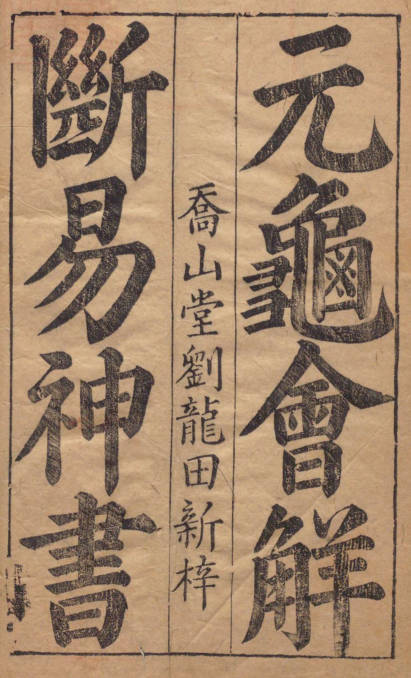 元龜會解
喬山堂劉龍田新梓
斷易神書